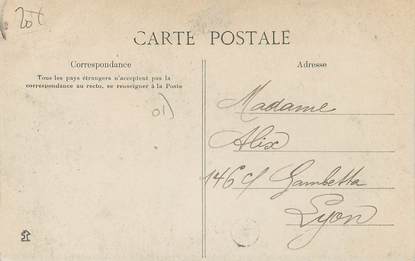 20f
CARTE POSTALE
Correspondance
Tous les pays étrangers n'acceptent pas la
correspondance au recto, se renseigner à la Poste
01)
Adresse
Madame
Alix
146 c/ Gambetta
Lyon